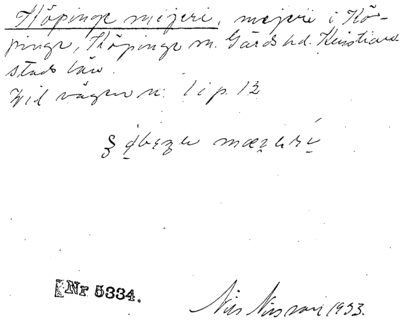 Köpinge mejeri, mejeri i Kö-
pinge, Köpinge sn. Gärds hd. Kristian-
stads län.
Vid vägen n: 1 i p. 12
Nr 5334.
Nils Nilsson 1933.